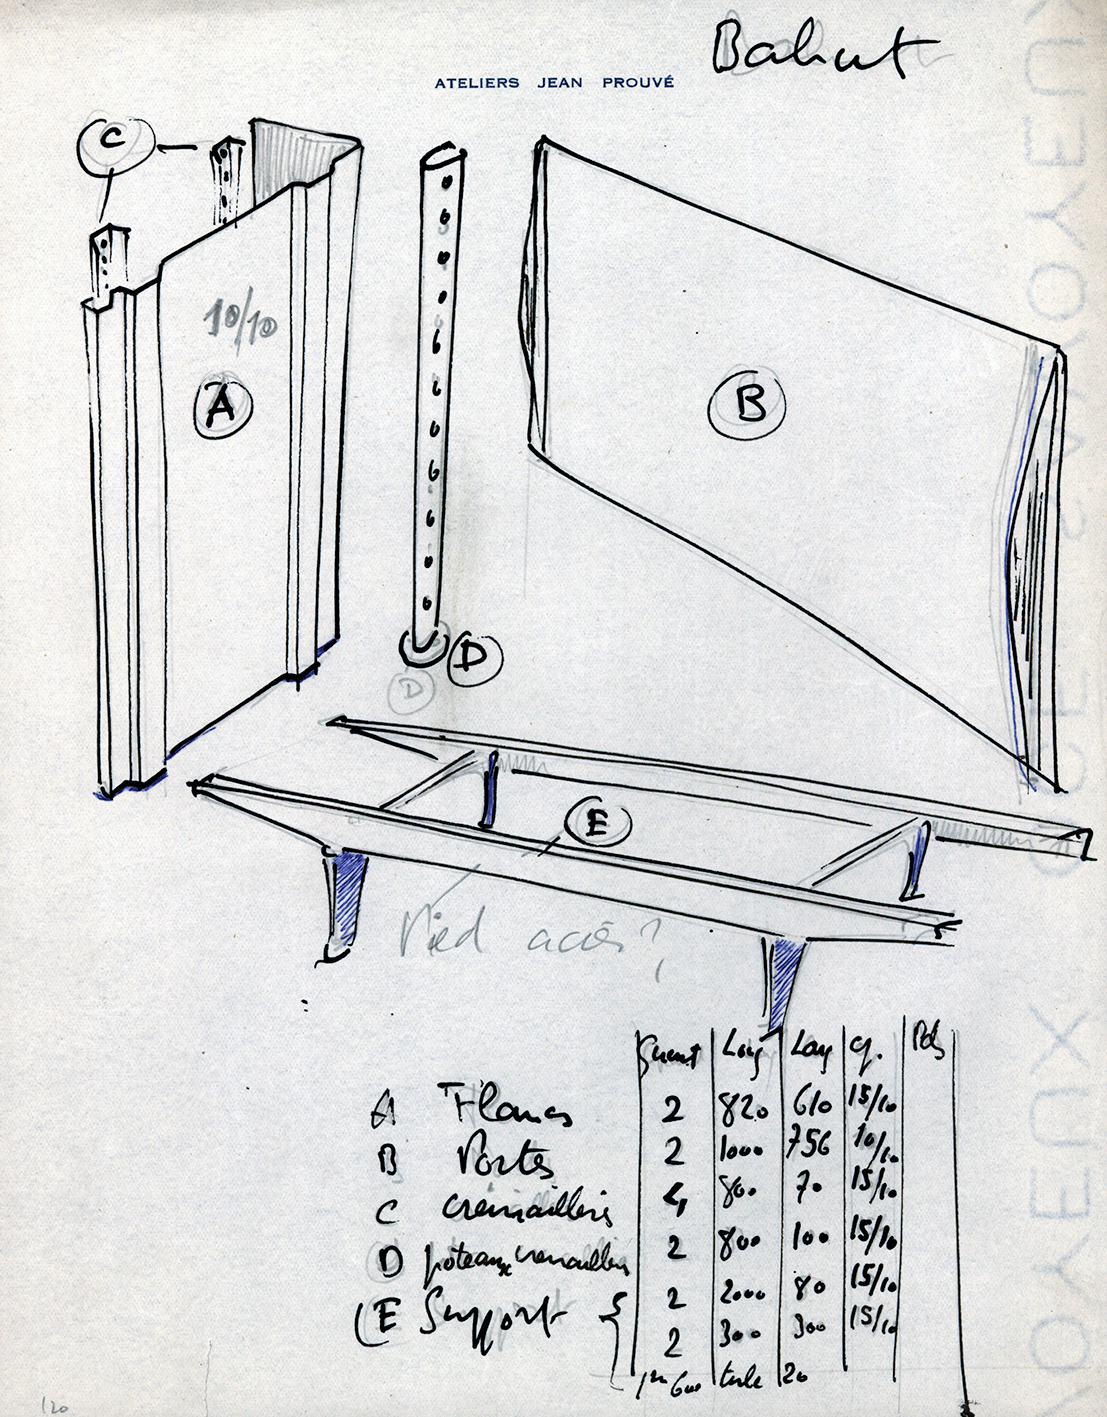 Bahut
ATELIERS JEAN PROUVÉ
C
10/10
A
B
D
D
E
Pied acier?
Quant Long Larg ep. Pds
A Flancs 2 820 610 15/10
B Portes 2 1000 756 10/10
C cremailleres 4 800 70 15/10
D poteaux cremailleres 2 800 100 15/10
E Support 2 2000 80 15/10
2 300 300 15/10
1m600 tube 20
120